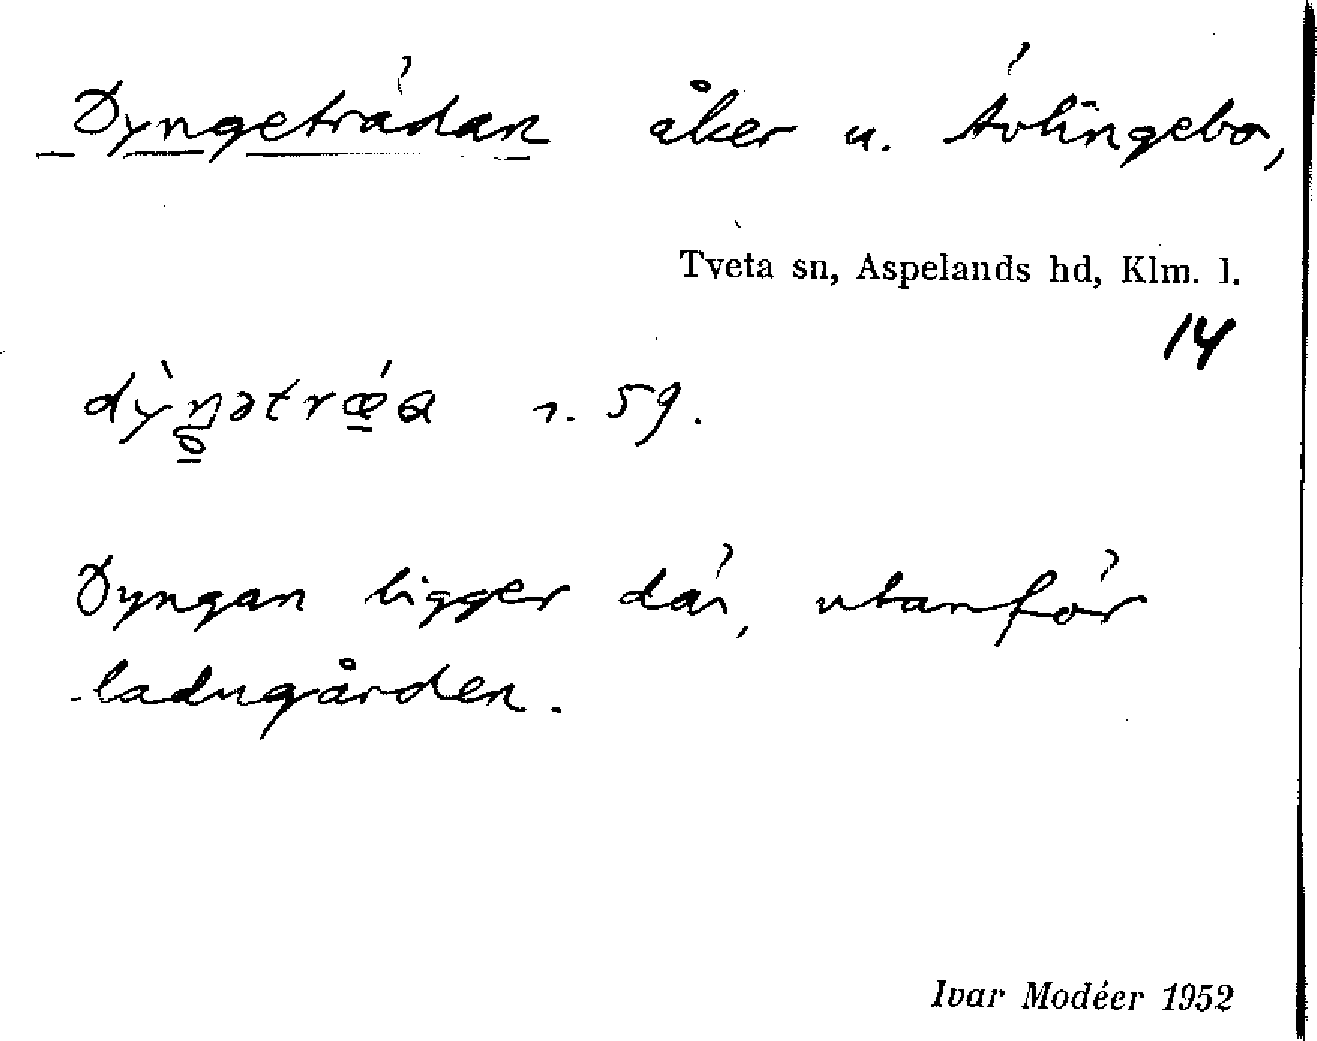 Dyngeträdan åker u. Ävlingebo,
Tveta sn, Aspelands hd, Klm. l.
14
59.
Dyngan ligger där, utanför
ladugården.
Ivar Modéer 1952